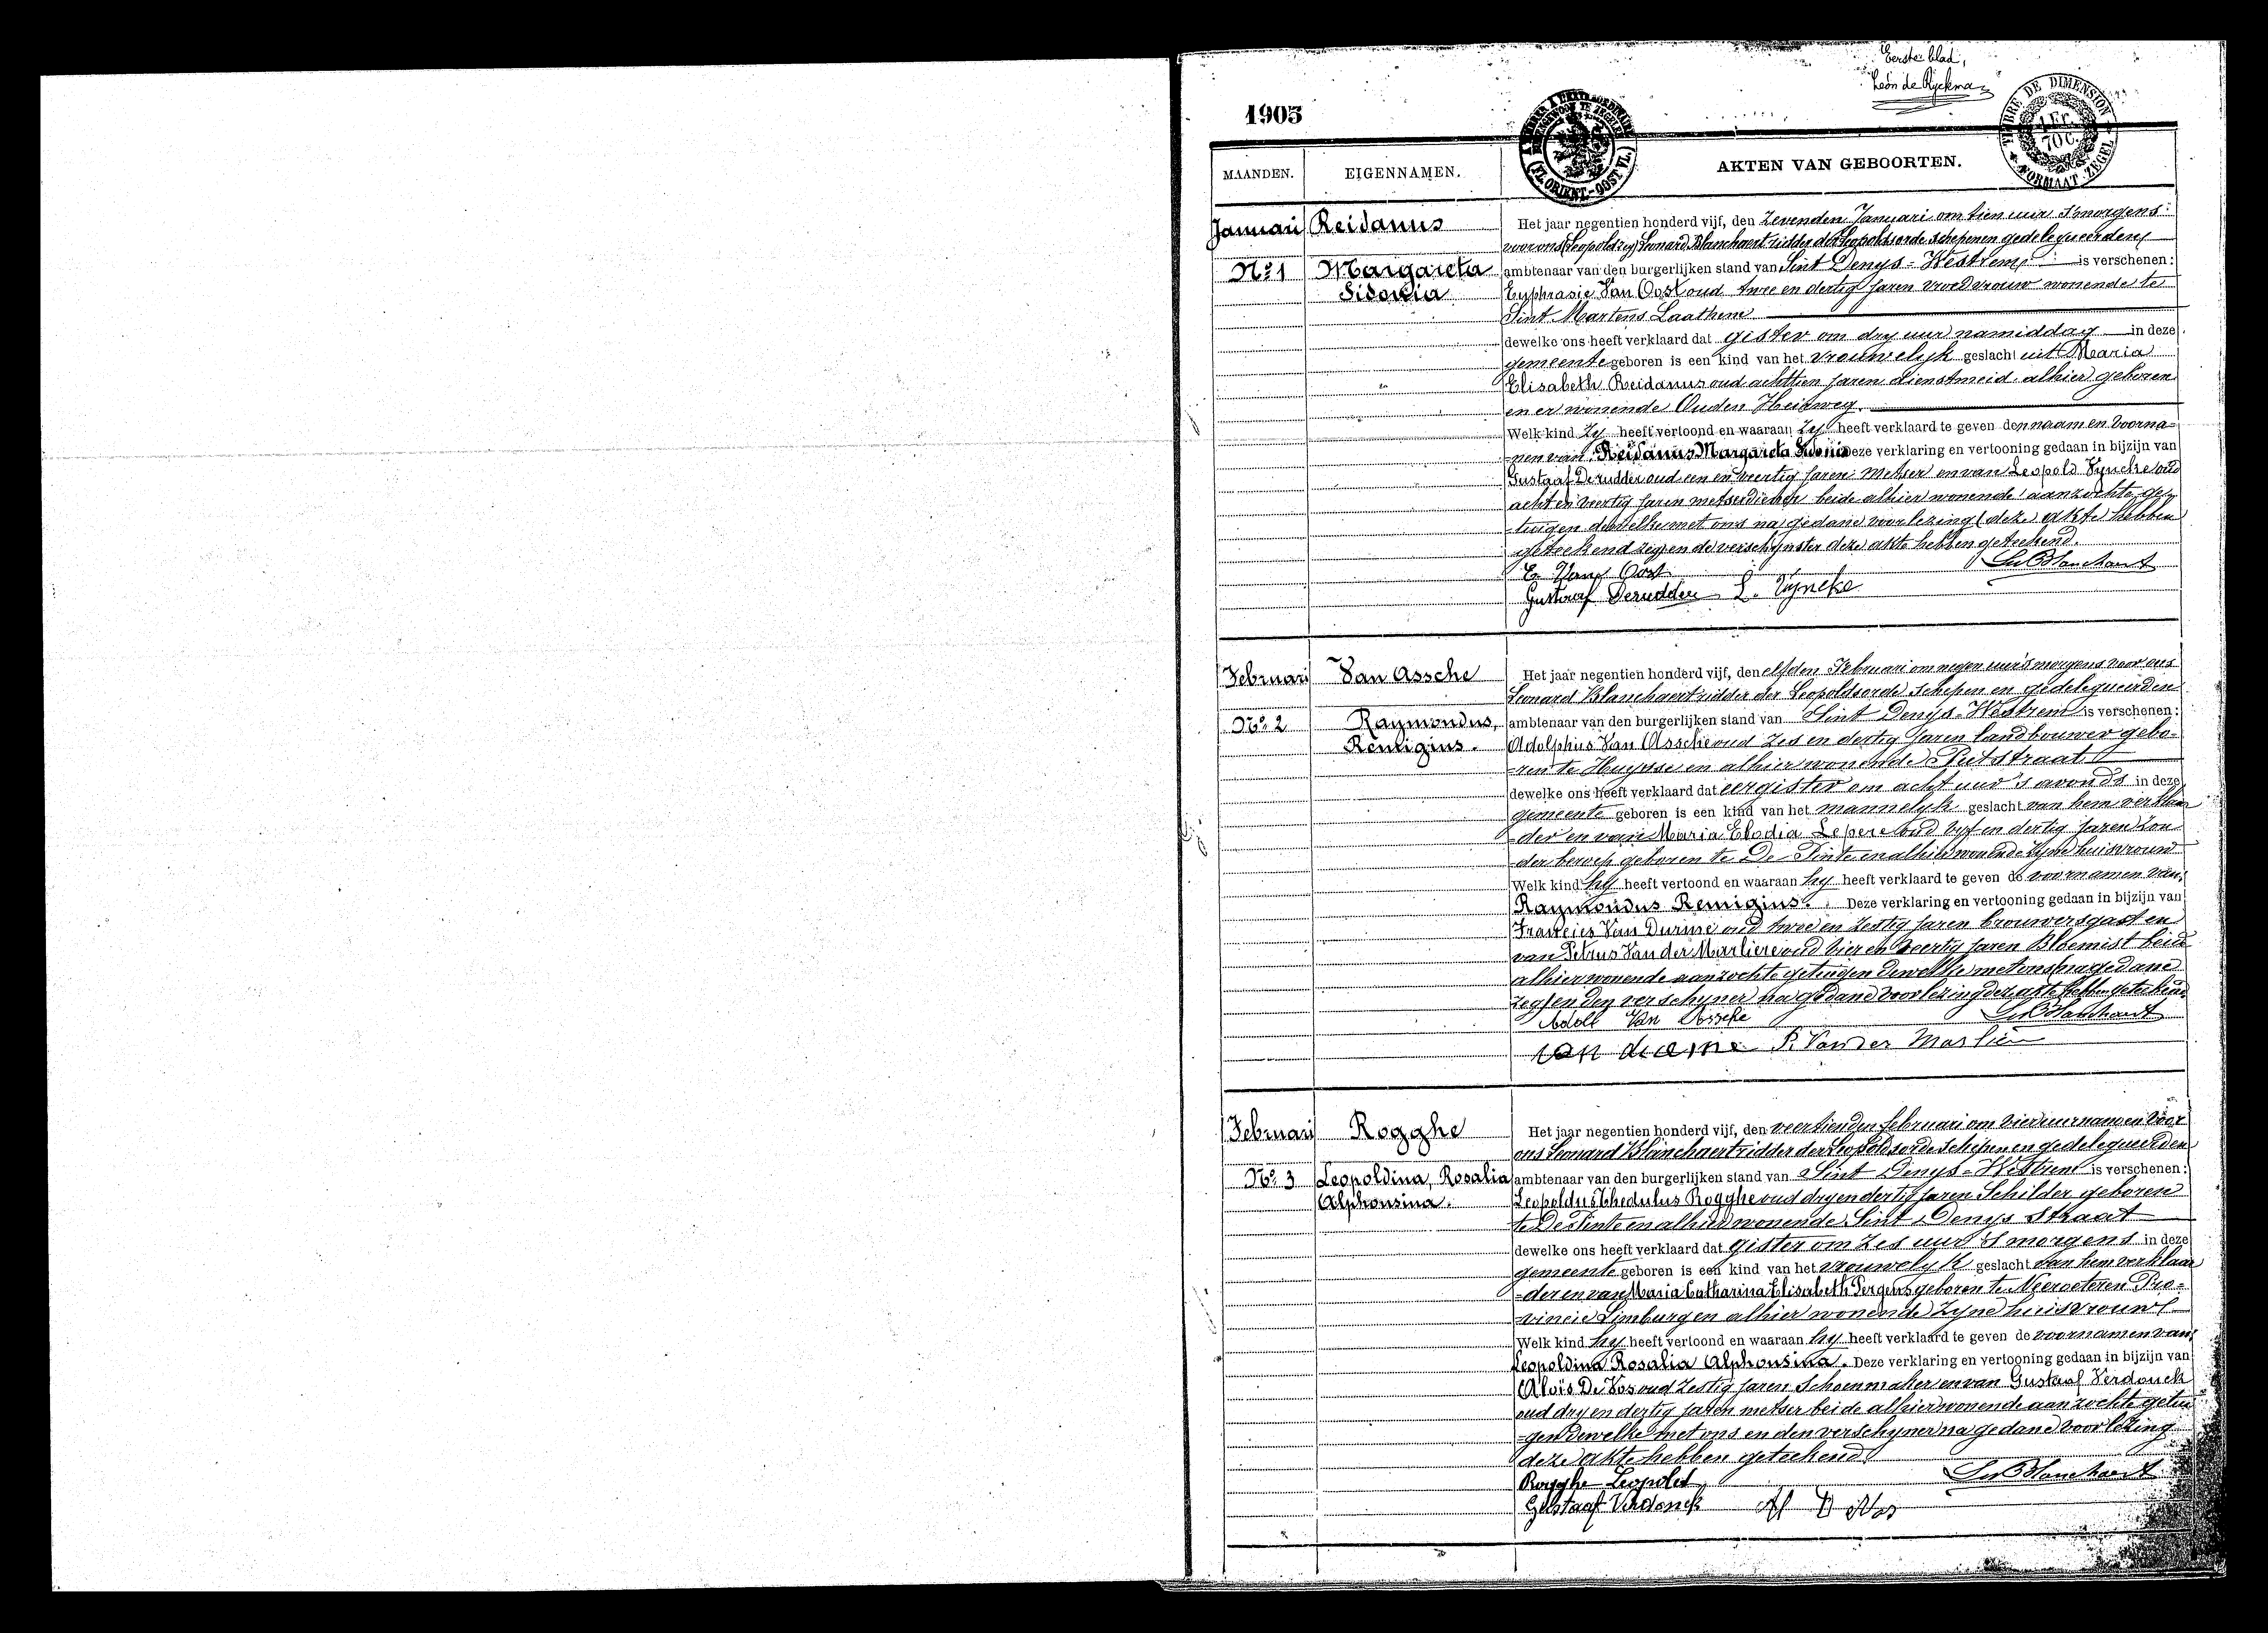 Eerste blad,
Léon de Ryckman
1905
TIMBRE DE DIMENSION
1 Fr.
70 C.
FORMAAT ZEGEL
(FL. ORIENT.-OOST VL.)
MAANDEN. EIGENNAMEN. AKTEN VAN GEBOORTEN.
Januari Reidanus Het jaar negentien honderd vijf, den zevenden Januari om tien uur s'morgens
voor ons (Leopold zy) Leonard Blanchaert ridder der Leopoldsorde schepenen gedelegueerden
No 1 Margareta ambtenaar van den burgerlijken stand van Sint Denys-Westrem is verschenen:
Sidonia Euphrasie Van Oost oud twee en dertig jaren vroedvrouw wonende te
Sint Martens Laathem
dewelke ons heeft verklaard dat gister om dry uur namiddag in deze
gemeente geboren is een kind van het vrouwelijk geslacht uit Maria
Elisabeth Reidanus oud achttien jaren dienstmeid alhier geboren
en er wonende Ouden Heirweg.
Welk kind zy heeft vertoond en waaraan zy heeft verklaard te geven den naam en voorna=
=nen van Reidanus Margareta Sidonia Deze verklaring en vertooning gedaan in bijzijn van
Gustaaf Derudder oud een en veertig jaren Metser en van Leopold Vyncke oud
acht en veertig jaren metserdiener beide alhier wonende aanzochte ge=
-tuigen dewelke met ons na gedane voorlezing (deze akte hebben
geteekend zeg) en de verschynster deze akte hebben geteekend.
E. Van Oost Le Blanchaert
Gustaaf Derudder L. Vyncke
Februari Van Assche Het jaar negentien honderd vijf, den elfden Februari om negen uur 's morgens voor ons
Leonard Blanchaert ridder der Leopoldsorde schepen en gedelegueerden
No 2 Raymondus, ambtenaar van den burgerlijken stand van Sint Denys-Westrem is verschenen:
Remigius. Adolphus Van Assche oud zes en dertig jaren landbouwer gebo=
=ren te Huysse en alhier wonende Putstraat
dewelke ons heeft verklaard dat eergister om acht uur 's avonds in deze
gemeente geboren is een kind van het mannelyk geslacht van hem verklaar
=der en van Maria Elodia Lepere oud vyf en dertig jaren zon
der beroep geboren te De Pinte en alhier wonende zyne huisvrouw
Welk kind hy heeft vertoond en waaraan hy heeft verklaard te geven de voornamen van
Raymondus Remigius. Deze verklaring en vertooning gedaan in bijzijn van
Francies Van Durme oud twee en zestig jaren brouwersgast en
van Petrus Van der Marliere oud vier en veertig jaren Bloemist beide
alhier wonende aanzochte getuigen dewelke met ons (na gedane
zeg) en den verschyner na gedane voorlezing dezer akte hebben geteekend
Adolf Van Assche Le Blanchaert
van durme P. Van der Marlière
Februari Rogghe Het jaar negentien honderd vijf, den veertienden februari om vier uur namen voor
ons Leonard Blanchaert ridder der Leopoldsorde schepen en gedelegueerden
No 3 Leopoldina, Rosalia ambtenaar van den burgerlijken stand van Sint Denys-Westrem is verschenen:
Alphonsina. Leopoldus Thedulus Rogghe oud dry en dertig jaren Schilder geboren
te De Pinte en alhier wonende Sint Denys straat
dewelke ons heeft verklaard dat gister om zes uur 's morgens in deze
gemeente geboren is een kind van het vrouwelyk geslacht van hem verklaar
=der en van Maria Catharina Elisabeth Pergens geboren te Neeroeteren Pro=
vincie Limburg en alhier wonende zyne huisvrouw
Welk kind hy heeft vertoond en waaraan hy heeft verklaard te geven de voornamen van
Leopoldina Rosalia Alphonsina. Deze verklaring en vertooning gedaan in bijzijn van
Aloïs De Vos oud zestig jaren Schoenmaker en van Gustaaf Verdonck
oud dry en dertig jaren metser beide alhier wonende aanzochte getui
gen dewelke met ons en den verschyner na gedane voorlezing
deze akte hebben geteekend
Rogghe Leopold Le Blanchaert
Gustaaf Verdonck Al De Vos